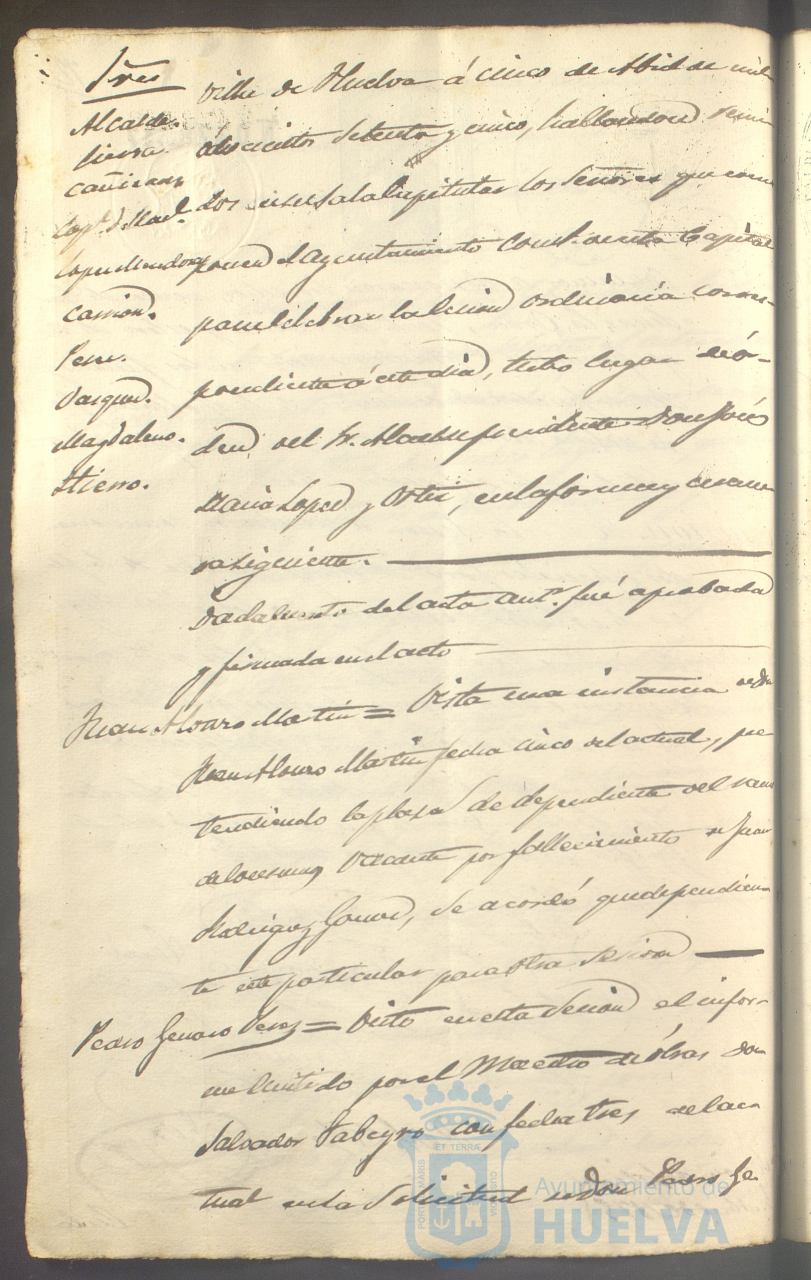 Sres
Alcalde.
Sierra
Cañizares
López Mendoza
Carrión.
Pere.
Vasquez.
Magdaleno.
Hierro.
Villa de Huelva á cinco de Abril de mil
ochocientos setenta y cinco, hallandose reuni
dos en su Sala Capitular los Señores que com
ponen el Ayuntamiento Const. de esta Capital
para celebrar la Sesion ordinaria corres-
pondiente á este dia, tubo lugar de ór-
den del Sr. Alcalde presidente Don José
Maria Lopez y Ortiz, en la forma y mane
ra siguiente.
Dada cuenta del acta ant.r fué aprobada
y firmada en el acto
Juan Alonso Martin = Vista una instancia de Dn
Juan Alonso Martin fecha cinco del actual, pre
tendiendo la plaza de dependiente del ramo
de vacante por fallecimiento de Juan
Rodriguez Gomez, se acordó quede pendien
te este particular para otra Sesion
Pedro Genaro Perez = Visto en esta Sesion el infor-
me emitido por el Maestro de Obras Don
Salvador con fecha tres del ac
tual en la Solicitud de Don Pedro Ge
PORTUS MARIS ET TERRÆ CUSTODIA
Ayuntamiento de
HUELVA